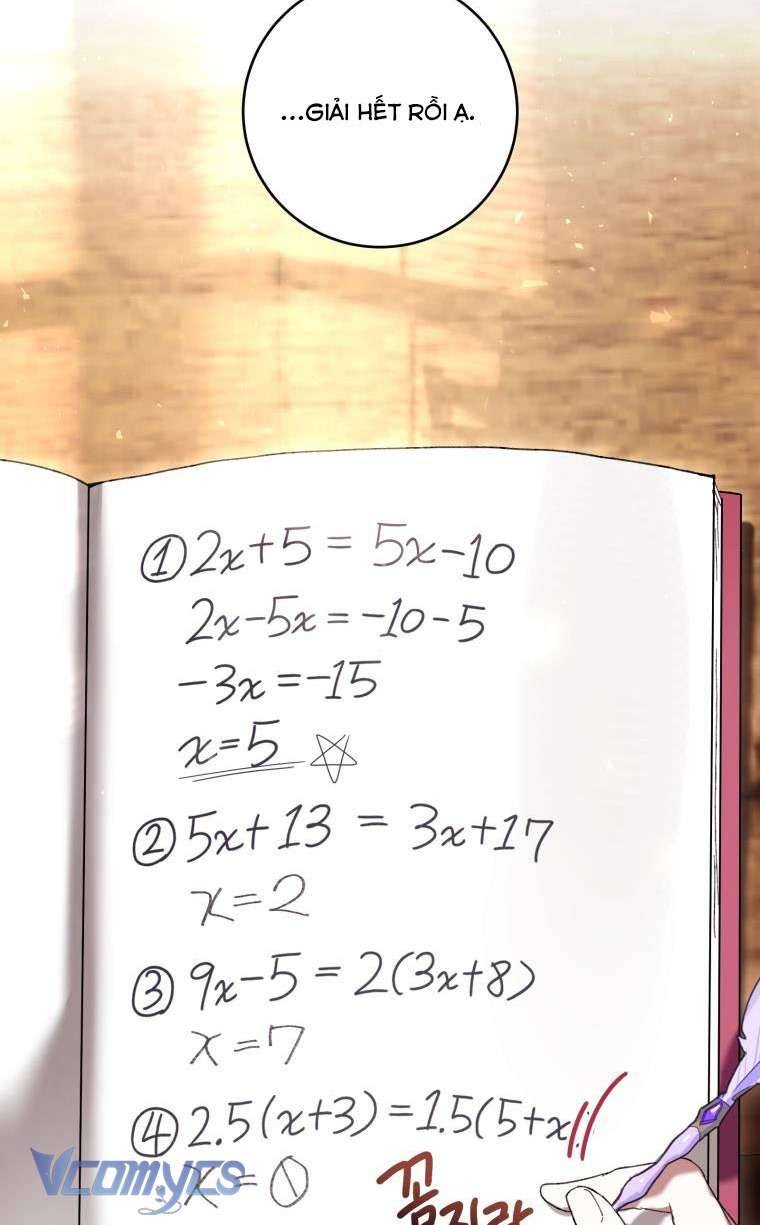 ...GIẢI HẾT RỒI Ạ.
① 2x+5 = 5x-10
2x-5x = -10-5
-3x = -15
x=5
② 5x+13 = 3x+17
x=2
③ 9x-5 = 2(3x+8)
x=7
④ 2.5(x+3) = 1.5(5+x
x=0
꼼지락
Vcomycs